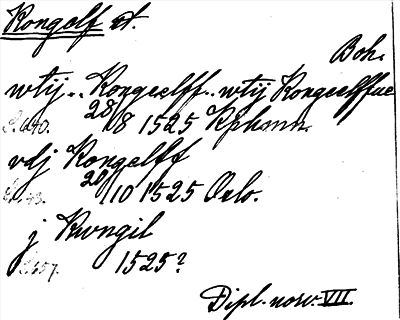 Kongolf st.
Boh.
wtij.. Kongeelff.. wtij Kongeelffue
S. 640. 28/8 1525 Kphmn.
vdj Kongelff
S. 643. 20/10 1525 Oslo.
j Kwngil
S. 657. 1525?
Dipl. norv. VII.